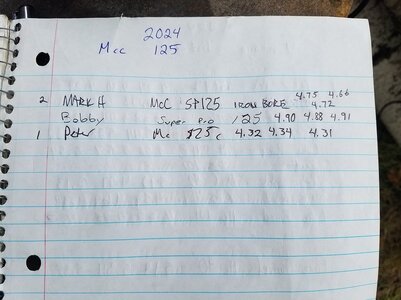 2024
Mcc 125
4.75 4.66
2 MARK H McC SP125 IRON BORE 4.72
Bobby Super Pro 125 4.90 4.88 4.91
1 Peter Mc 4.32 4.34 4.31